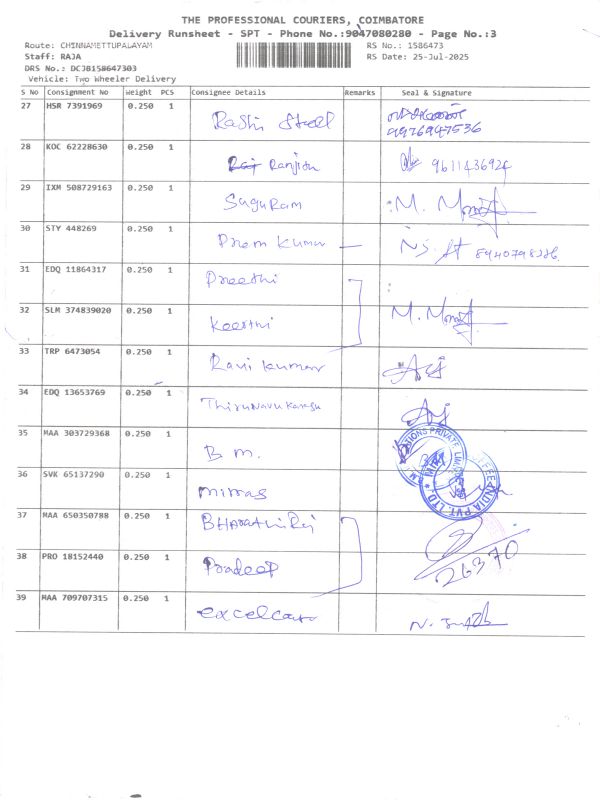 THE PROFESSIONAL COURIERS, COIMBATORE
Delivery Runsheet - SPT - Phone No.:9047080280 - Page No.:3
Route: CHINNAMETTUPALAYAM RS No.: 1586473
Staff: RAJA RS Date: 25-Jul-2025
DRS No.: DCJB158647303
Vehicle: Two Wheeler Delivery
S No Consignment No Weight PCS Consignee Details Remarks Seal & Signature
27 HSR 7391969 0.250 1 Rashi Steel
9976947536
28 KOC 62228630 0.250 1 Ranjith
29 IXM 508729163 0.250 1 SuguRam M.
30 STY 448269 0.250 1 Prem Kumar
31 EDQ 11864317 0.250 1 Preethi
32 SLM 374839020 0.250 1 Keerthi M.
33 TRP 6473054 0.250 1 Ravi Kumar
34 EDQ 13653769 0.250 1 Thirunavukarasu
35 MAA 303729368 0.250 1 B M.
36 SVK 65137290 0.250 1 mirras
37 MAA 650350788 0.250 1 BharathiRaj
38 PRO 18152440 0.250 1 Pradeep 26370
39 MAA 709707315 0.250 1 excelcare